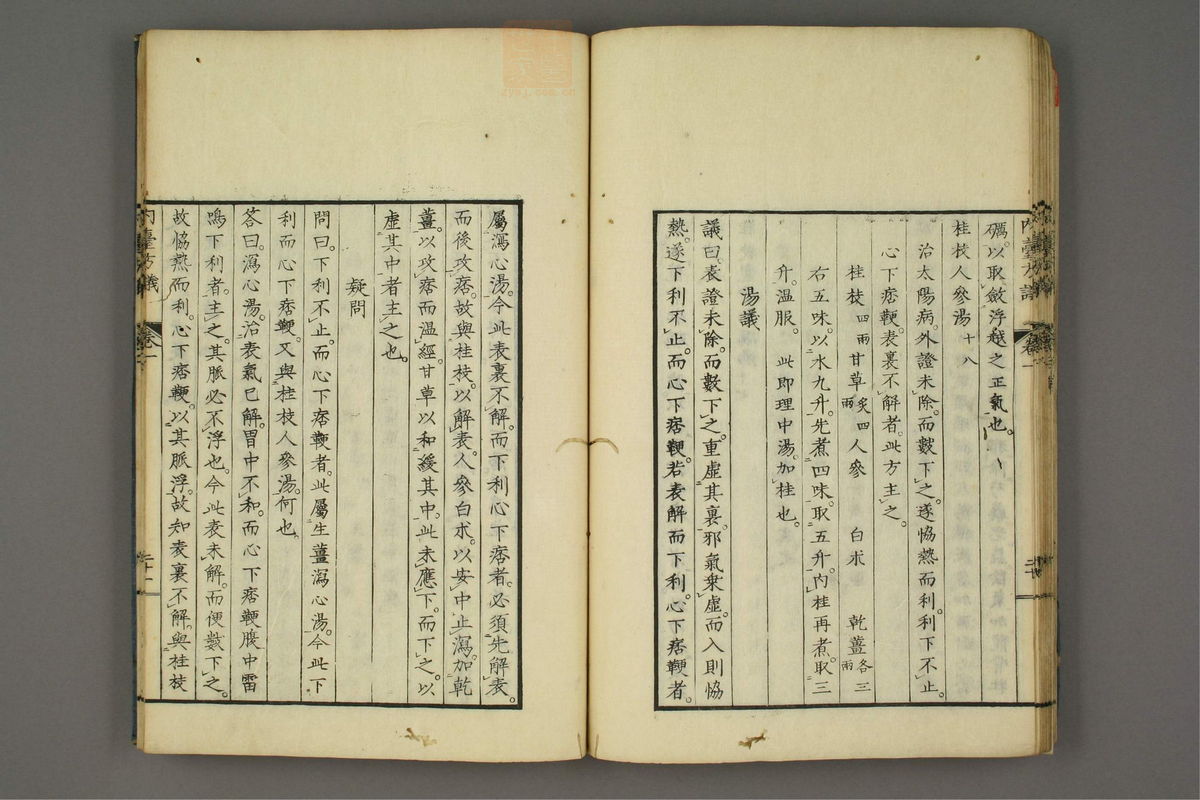 礪以取斂浮越之正氣也
桂枝人參湯 十八
治太陽病外證未除而數下之遂恊熱而利利下不止
心下痞鞕表裏不解者此方主之
桂枝 四兩 甘草 炙四兩 人參 白朮 乾薑 各三兩
右五味以水九升先煮四味取五升內桂再煮取三
升溫服 此即理中湯加桂也
湯議
議曰表證未除而數下之重虛其裏邪氣乘虛而入則恊
熱遂下利不止而心下痞鞕若表解而下利心下痞鞕者
屬瀉心湯今此表裏不解而下利心下痞者必須先解表
而後攻痞故與桂枝以解表人參白朮以安中止瀉加乾
薑以攻痞而溫經甘草以和緩其中此未應下而下之以
虛其中者主之也
疑問
問曰下利不止而心下痞鞕者此屬生薑瀉心湯今此下
利而心下痞鞕又與桂枝人參湯何也
答曰瀉心湯治表氣已解胃中不和而心下痞鞕腹中雷
鳴下利者主之其脈必不浮也今此表未解而便數下之
故恊熱而利心下痞鞕以其脈浮故知表裏不解與桂枝
內臺方議 卷一 二十一